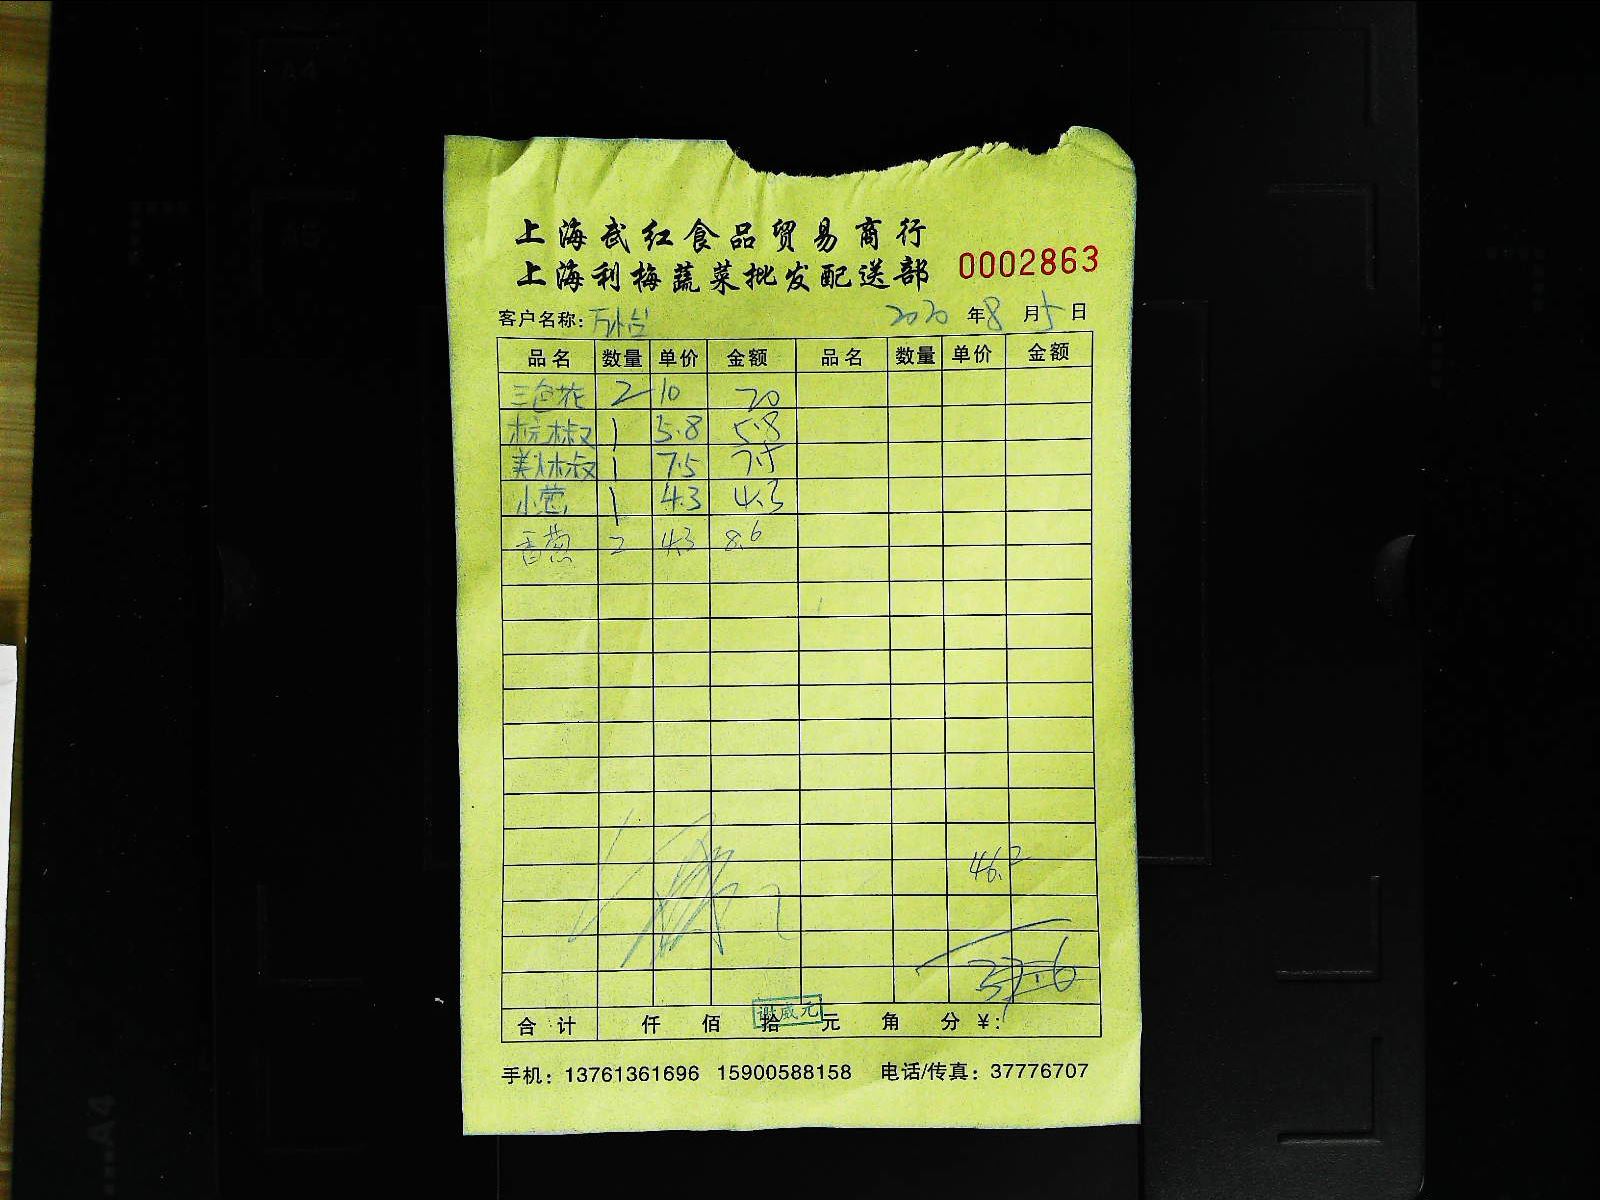 上海武红食品贸易商行
上海利梅蔬菜批发配送部 0002863
客户名称: 2020 年 8 月 5 日
品名 数量 单价 金额 品名 数量 单价 金额
三色花 2 10 20
杭椒 1 5.8 5.8
美人椒 1 7.5 7.5
小葱 1 4.3 4.3
香葱 2 4.3 8.6
46.2
37.6
谢威元
合计 仟 佰 拾 元 角 分 ¥:
手机: 13761361696 15900588158 电话/传真: 37776707